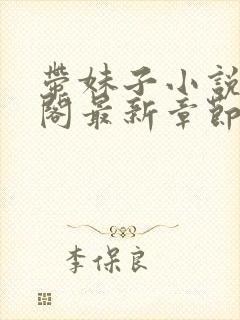 带妹子小說
閣最新章節
李保良